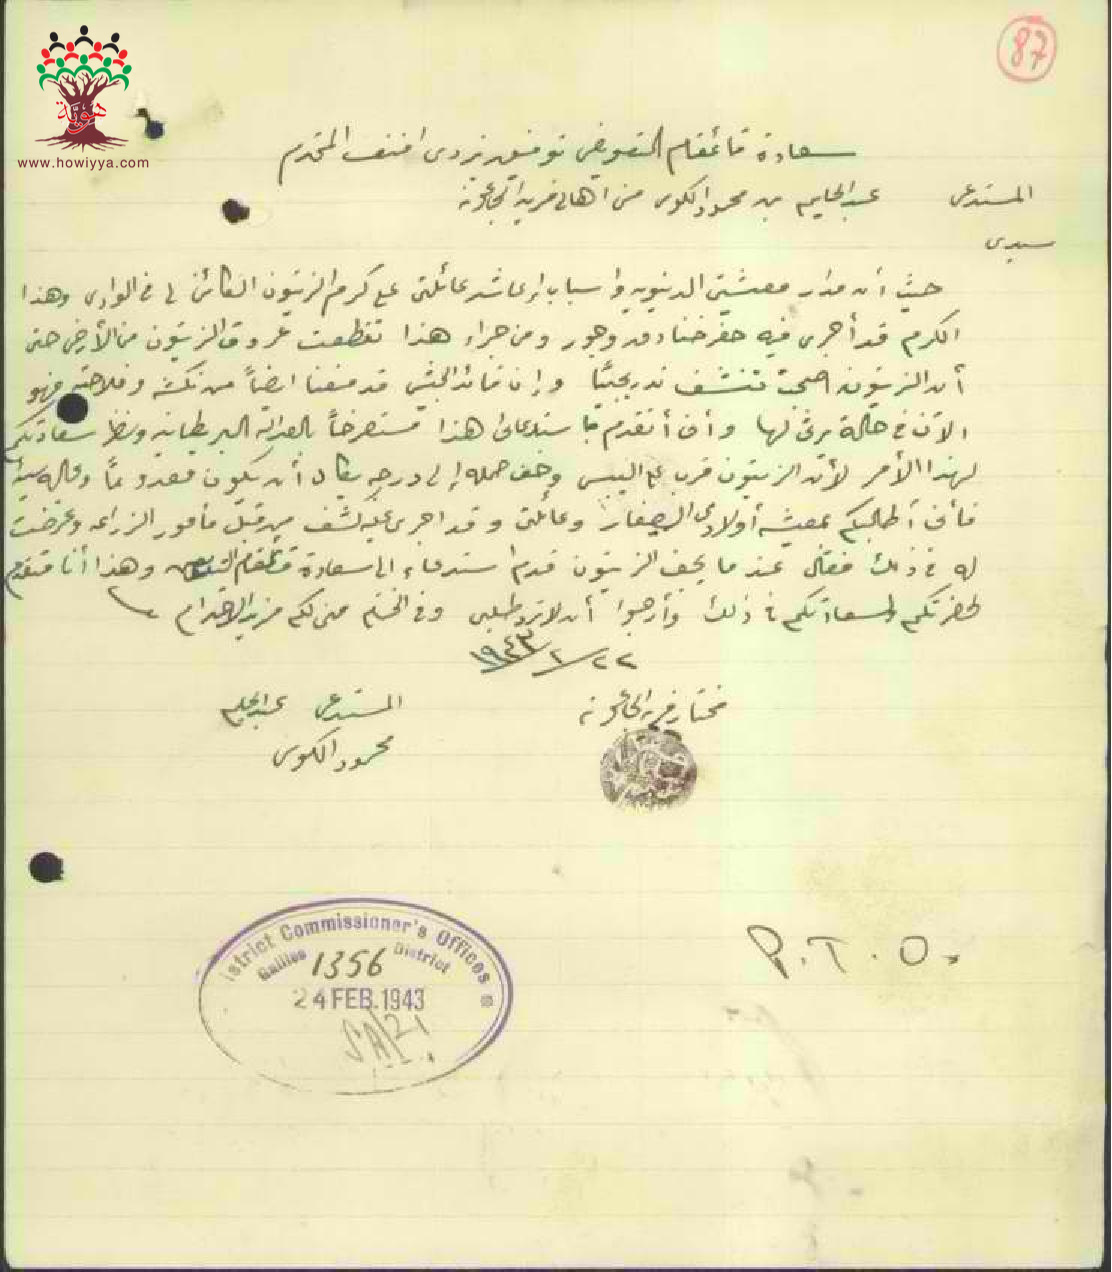 87
هوية
www.howiyya.com
سعادة قائمقام التعويض توفيق يزدي افندي المحترم
المستدعي عبد الحليم بن محمود الكوسى من اهالي قرية الجاعونة
سيدي
حيث أن مدار معيشتي الدنيويه واسباب اعاشة عائلتي على كرم الزيتون الكائن لي في الوادي وهذا
الكرم قد أجرى فيه حفر خنادق وجور ومن جراء هذا تقطعت عروق الزيتون من الأرض حتى
أن الزيتون اصبح تنشف تدريجيًا وإن قائد الجيش قد منعنا ايضاً من نكشه وفلاحته فهو
الآن في حالة يرثى لها وأني أتقدم باستدعائي هذا مستصرخاً بالعدالة البريطانيه ونظر سعادتكم
لهذا الأمر لأن الزيتون قرب على اليبس وخف حمله إلى درجة يكاد أن يكون معدوماً وحاله سيئة
فأني أطالبكم بمعيشة أولادي الصغار وعائلتي وقد اجرى عليه كشف من قبل مأمور الزراعه وعرضت
له في ذلك فقال عندما يجف الزيتون قدم استدعاء الى سعادة قائمقام وهذا أنا متقدم
لحضرتكم لسعادتكم في ذلك وأرجوا أن لا ترد طلبي وفي الختام مني لكم مزيد الاحترام
٢٢/٢/١٩٤٣
مختار قرية الجاعونة المستدعي عبد الحليم
محمود الكوسى
District Commissioner's Offices
Galilee District
1356
24 FEB. 1943
P.T.O.